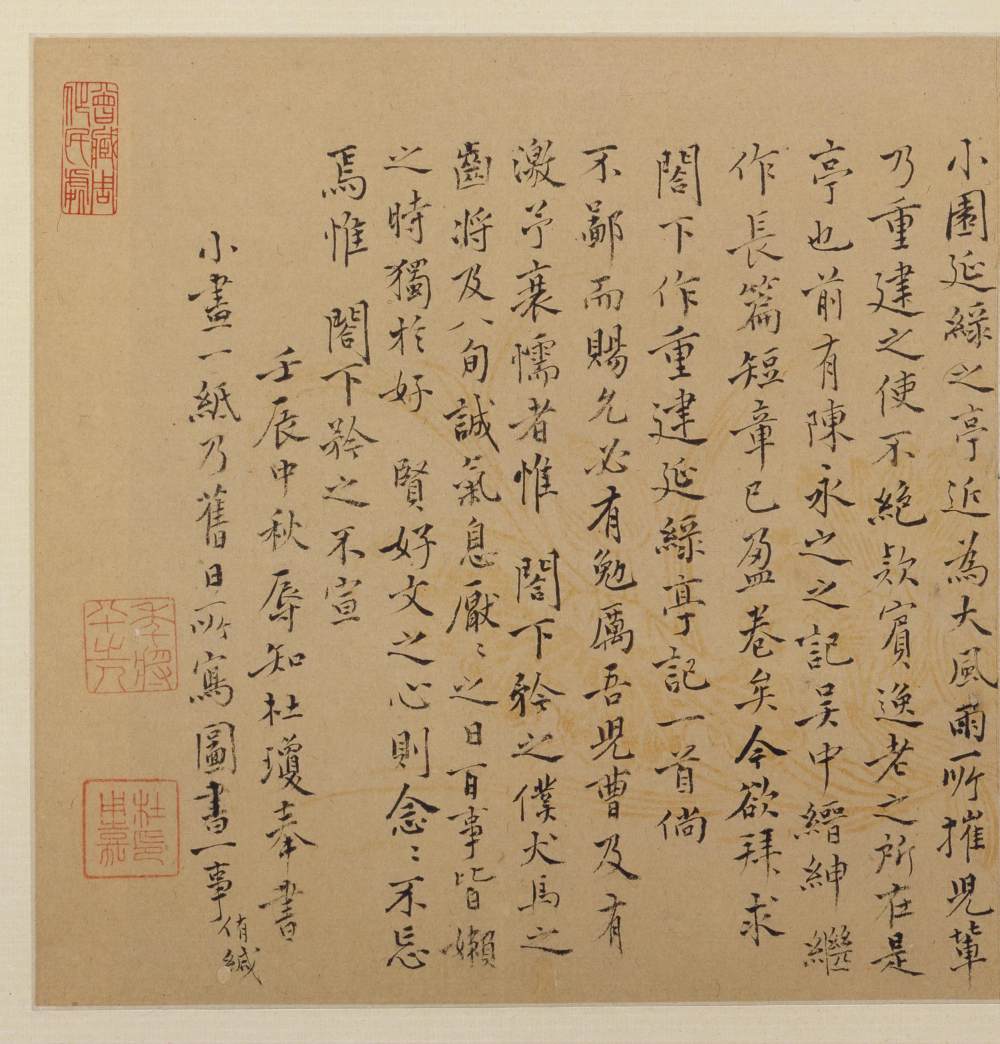 小園延綠之亭近為大風雨所摧児輩
乃重建之使不絕欵賔逸老之所在是
亭也前有陳永之之記吴中縉紳繼
作長篇短章已盈卷矣今欲拜求
閤下作重建延綠亭記一首倘
不鄙而賜允必有勉厲吾児曹及有
激予衰懦者惟 閤下矜之僕犬馬之
齒將及八旬誠氣息厭〻之日百事皆嬾
之時獨於好 賢好文之心則念〻不忘
焉惟 閤下矜之不宣
壬辰中秋辱知杜瓊奉書
小畫一紙乃舊日所寫圖書一事侑緘
曾藏周
氏處